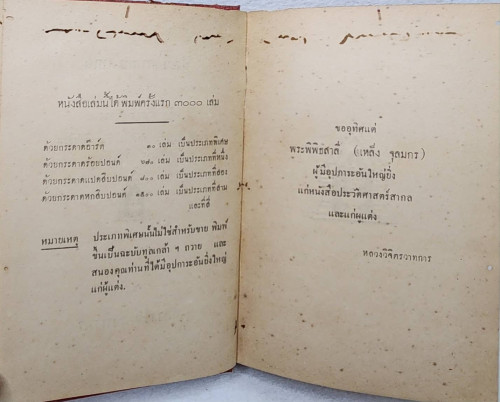 หนังสือเล่มนี้ได้พิมพ์ครั้งแรก ๓๐๐๐ เล่ม
ด้วยกระดาดอ๊าร์ต ๓๐ เล่ม เป็นประเภทพิเศษ
ด้วยกระดาดร้อยปอนด์ ๖๗๐ เล่ม เป็นประเภทที่หนึ่ง
ด้วยกระดาดแปดสิบปอนด์ ๘๐๐ เล่ม เป็นประเภทที่สอง
ด้วยกระดาดหกสิบปอนด์ ๑๕๐๐ เล่ม เป็นประเภทที่สาม
และที่สี่
หมายเหตุ ประเภทพิเศษนั้นไม่ใช่สำหรับขาย พิมพ์
ขึ้นเป็นฉะบับทูลเกล้า ฯ ถวาย และ
สนองคุณท่านที่ได้มีอุปการะอันยิ่งใหญ่
แก่ผู้แต่ง.
ขออุทิศแด่
พระพิพิธสาลี (เหล็ง จุลมกร)
ผู้มีอุปการะอันใหญ่ยิ่ง
แก่หนังสือประวัติศาสตร์สากล
และแก่ผู้แต่ง
หลวงวิจิตรวาทการ